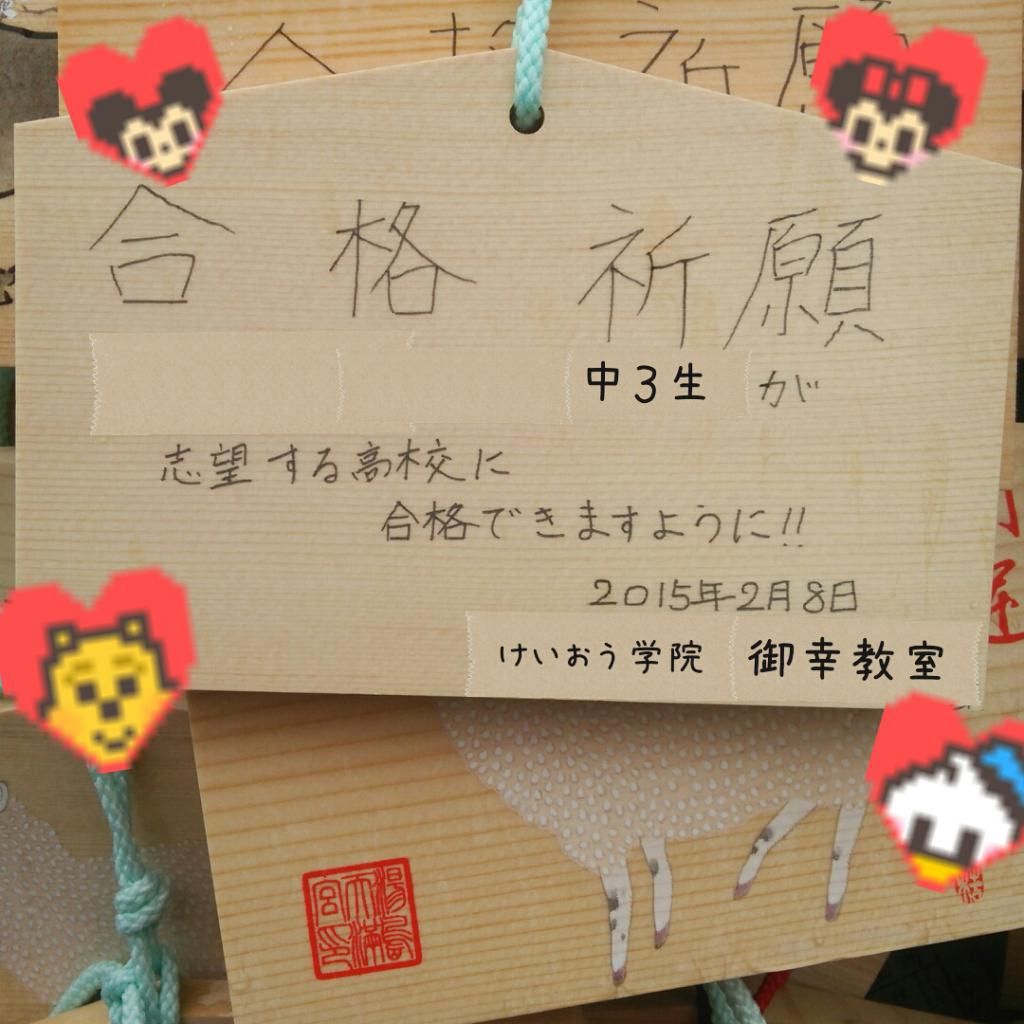 合格祈願
中3生が
志望する高校に
合格できますように!!
2015年2月8日
けいおう学院 御幸教室